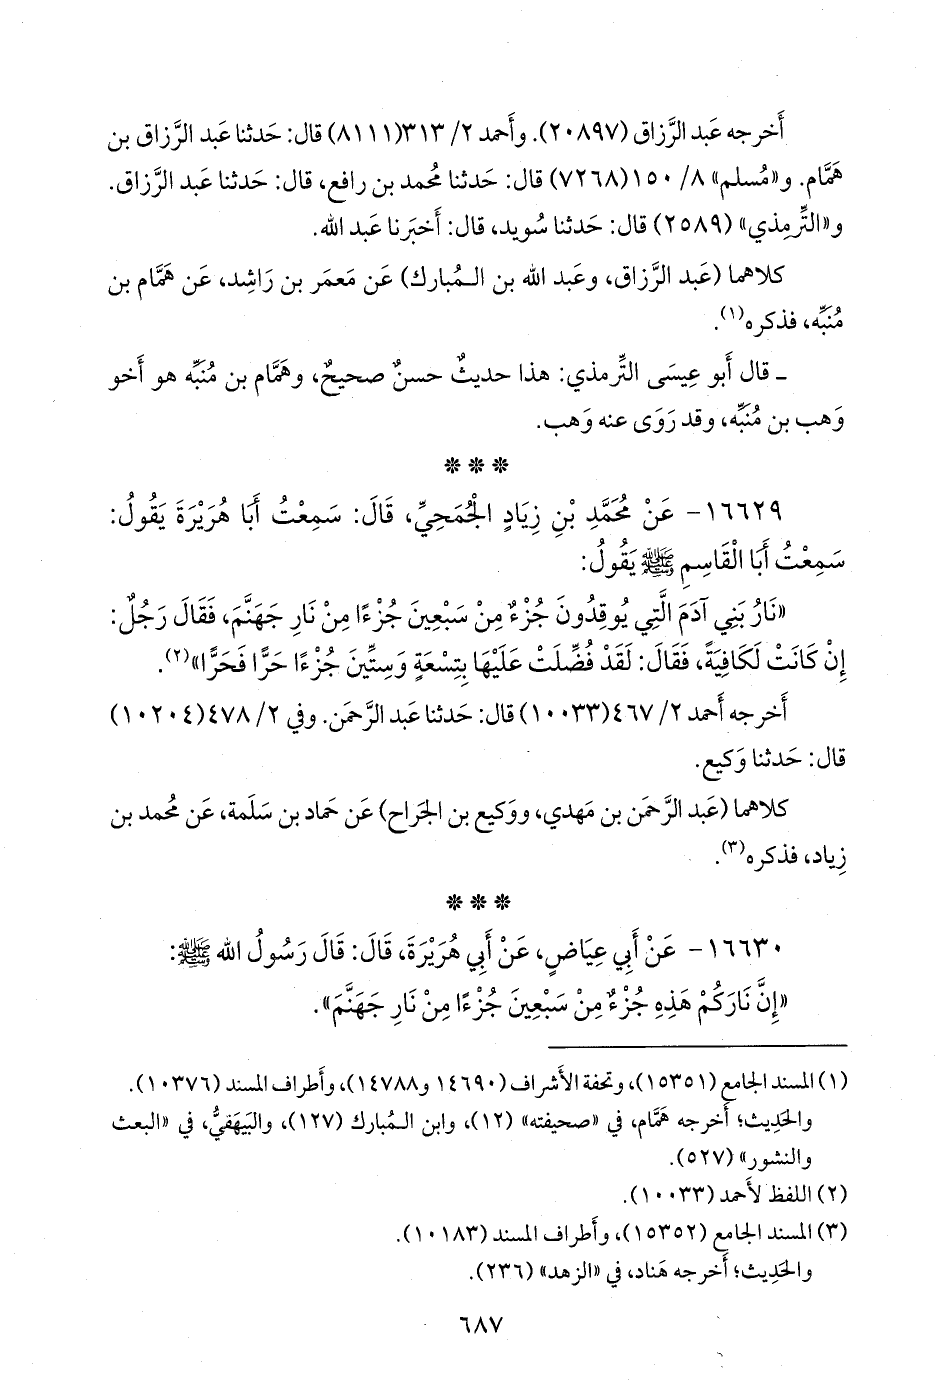 أَخرجه عَبد الرَّزاق (٢٠٨٩٧). وأَحمد ٢/ ٣١٣(٨١١١) قال: حَدثنا عَبد الرَّزاق بن
هَمَّام. و«مُسلم» ٨/ ١٥٠(٧٢٦٨) قال: حَدثنا مُحمد بن رافع، قال: حَدثنا عَبد الرَّزاق.
و«التِّرمِذي» (٢٥٨٩) قال: حَدثنا سُويد، قال: أَخبَرنا عَبد الله.
كلاهما (عَبد الرَّزاق، وعَبد الله بن الـمُبارك) عَن مَعمَر بن رَاشِد، عَن هَمَّام بن
مُنَبِّه، فذكره(١).
ـ قال أَبو عِيسَى التِّرمذي: هذا حديثٌ حسنٌ صحيحٌ، وهَمَّام بن مُنَبِّه هو أَخو
وَهب بن مُنَبِّه، وقد رَوَى عنه وَهب.
* * *
١٦٦٢٩- عَنْ مُحَمَّدِ بْنِ زِيَادٍ الْجُمَحِيِّ، قَالَ: سَمِعْتُ أَبَا هُرَيْرَةَ يَقُولُ:
سَمِعْتُ أَبَا الْقَاسِمِ ﷺ يَقُولُ:
«نَارُ بَنِي آدَمَ الَّتِي يُوقِدُونَ جُزْءٌ مِنْ سَبْعِينَ جُزْءًا مِنْ نَارِ جَهَنَّمَ، فَقَالَ رَجُلٌ:
إِنْ كَانَتْ لَكَافِيَةً، فَقَالَ: لَقَدْ فُضِّلَتْ عَلَيْهَا بِتِسْعَةٍ وَسِتِّينَ جُزْءًا حَرًّا فَحَرًّا»(٢).
أَخرجه أَحمد ٢/ ٤٦٧(١٠٠٣٣) قال: حَدثنا عَبد الرَّحمَن. وفي ٢/ ٤٧٨(١٠٢٠٤)
قال: حَدثنا وَكيع.
كلاهما (عَبد الرَّحمَن بن مَهدي، ووَكيع بن الجَراح) عَن حَماد بن سَلَمة، عَن مُحمد بن
زِياد، فذكره(٣).
* * *
١٦٦٣٠- عَنْ أَبِي عِيَاضٍ، عَنْ أَبِي هُرَيْرَةَ، قَالَ: قَالَ رَسُولُ الله ﷺ:
«إِنَّ نَارَكُمْ هَذِهِ جُزْءٌ مِنْ سَبْعِينَ جُزْءًا مِنْ نَارِ جَهَنَّمَ».
(١) المسند الجامع (١٥٣٥١)، وتحفة الأشراف (١٤٦٩٠ و١٤٧٨٨)، وأَطراف المسند (١٠٣٧٦).
والحَدِيث؛ أَخرجه هَمَّام، في «صحيفته» (١٢)، وابن الـمُبارك (١٢٧)، والبَيهَقيُّ، في «البعث
والنشور» (٥٢٧).
(٢) اللفظ لأَحمد (١٠٠٣٣).
(٣) المسند الجامع (١٥٣٥٢)، وأَطراف المسند (١٠١٨٣).
والحَدِيث؛ أَخرجه هَناد، في «الزهد» (٢٣٦).
٦٨٧